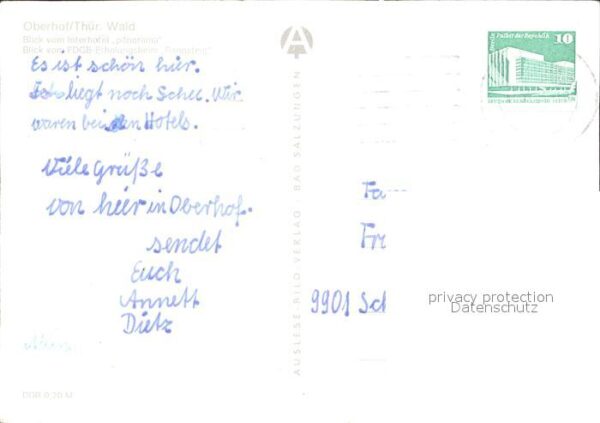 Oberhof/Thür. Wald
Blick vom Interhotel „panorama"
Blick vom FDGB-Erholungsheim „Rennsteig"
Es ist schön hier.
Es liegt noch Schee. Wir
waren bei den Hotels.
Viele Grüße
von hier in Oberhof.
sendet
Euch
Annett
Dietz
DDR 0,20 M
AUSLESE-BILD-VERLAG · BAD SALZUNGEN
Berlin Palast der Republik 10
Fa
Fr
9901 Sch
privacy protection
Datenschutz